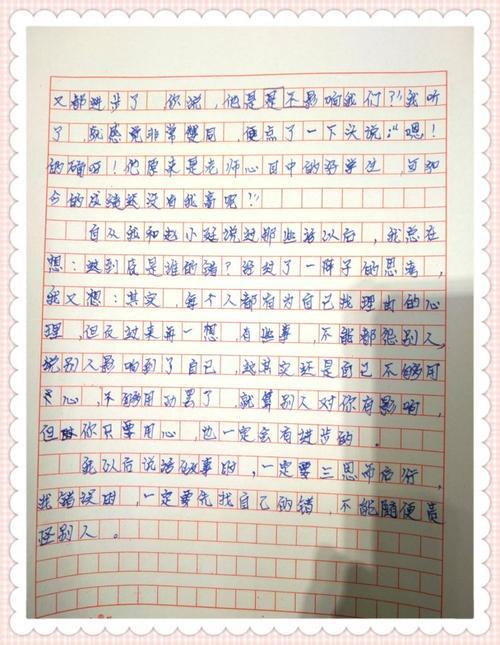 又都进步了 你说，他是是不影响我们？”我听
了，就感觉非常赞同，便点了一下头说：“嗯！
的确呀！他原来是老师心目中的好学生，可如
今的成绩还没有我高呢？”
自从我和赵小廷说过那些话以后，我总在
想：这到底是谁的错？经过了一阵子的思考，
我又想：其实，每个人都有为自己找理由的心
理，但反过来再一想，有些事，不能都怨别人，
说别人影响到了自己，这其实还是自己不够用
心，不够用功罢了，就算别人对你有影响，
但你只要用心，也一定会有进步的。
我以后说话做事时，一定要三思而后行，
找错误时，一定要先找自己的错，不能随便责
怪别人。